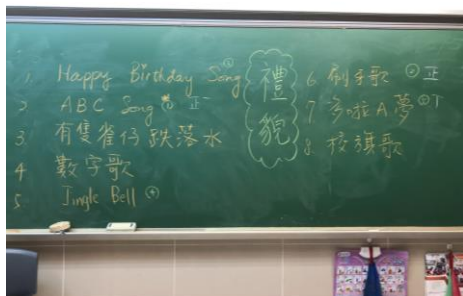 1. Happy Birthday Song
2 ABC Song 正
3. 有隻雀仔跌落水
4 數字歌
5 Jingle Bell
禮貌
6. 刷牙歌 正
7. 多啦A夢 T
8. 校旗歌